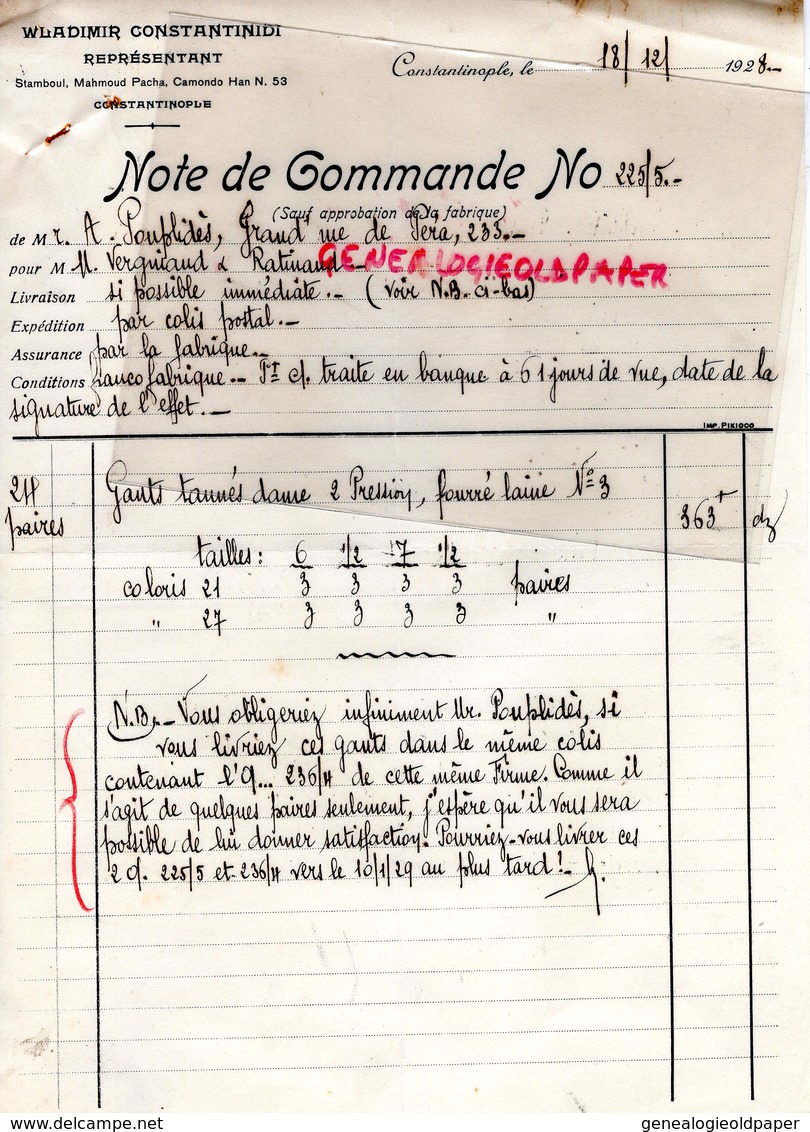 WLADIMIR CONSTANTINIDI
REPRÉSENTANT
Stamboul, Mahmoud Pacha, Camondo Han N. 53
CONSTANTINOPLE
Constantinople, le 18/12/ 1928.-
Note de Commande No 225/5.-
(Sauf approbation de la fabrique)
de Mr. A. Pouplidès, Grand' rue de Péra, 233.-
pour M.M. Vergniaud & Ratinaud.-
GENEALOGIEOLDPAPER
Livraison si possible immédiate.- (voir N.B. ci-bas)
Expédition par colis postal.-
Assurance par la fabrique.-
Conditions franco fabrique.- Pt c/. traite en banque à 61 jours de vue, date de la
signature de l'effet.-
IMP. PIKIOCO
24 paires Gants tannés dame 2 Pression, fourré laine No 3 363 dz
tailles: 6 1/2 7 1/2
coloris 21 3 3 3 3 paires
" 27 3 3 3 3 "
N.B.- Vous obligeriez infiniment Mr. Pouplidès, si
vous livriez ces gants dans le même colis
contenant l'O... 236/4 de cette même Firme. Comme il
s'agit de quelques paires seulement, j'espère qu'il vous sera
possible de lui donner satisfaction. Pourriez-vous livrer ces
2 O/. 225/5 et 236/4 vers le 10/1/29 au plus tard!-
genealogieoldpaper